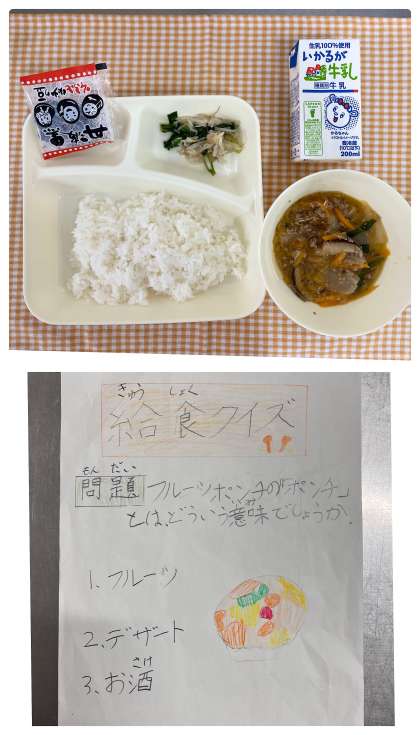 生乳100%使用
いかるが
牛乳
種類別 牛乳
要冷蔵
(10℃以下)
200ml
きゅう しょく
給食クイズ
もん だい
問題 フルーツポンチの「ポンチ」
いみ
とは、どういう意味でしょうか。
1、フルーツ
2、デザート
さけ
3、お酒